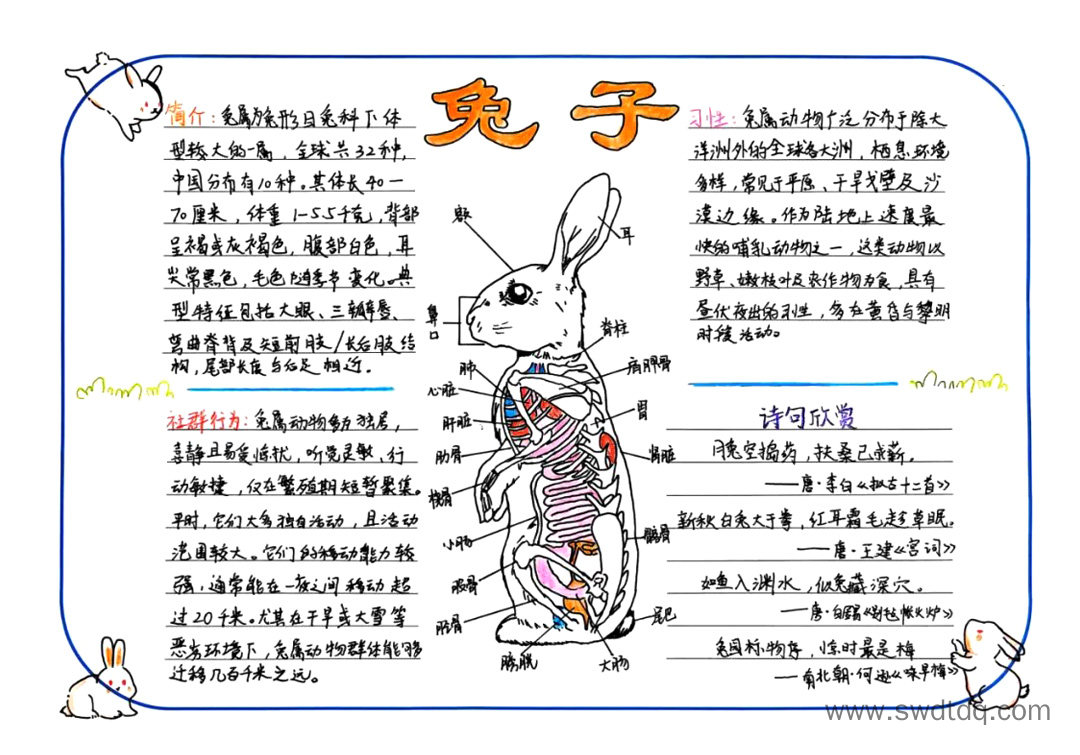 兔子
简介：兔属为兔形目兔科下体
型较大的一属，全球共32种，
中国分布有10种。其体长40一
70厘米，体重1-5.5千克，背部
呈褐或灰褐色，腹部白色，耳
尖常黑色，毛色随季节变化。典
型特征包括大眼、三瓣唇、
弯曲脊背及短前肢/长后肢结
构，尾部长度与后足相近。
社群行为：兔属动物多为独居，
喜静且易受惊扰，听觉灵敏、行
动敏捷，仅在繁殖期短暂聚集。
平时，它们大多独自活动，且活动
范围较大。它们的移动能力较
强，通常能在一夜之间移动超
过20千米。尤其在干旱或大雪等
恶劣环境下，兔属动物群体能够
迁移几百千米之远。
眼
耳
鼻口
脊柱
肩胛骨
肺
心脏
肝脏
肋骨
胃
肾脏
桡骨
小肠
髋骨
股骨
胫骨
尾巴
膀胱
大肠
习性：兔属动物广泛分布于除大
洋洲外的全球各大洲，栖息环境
多样，常见于平原、干旱戈壁及沙
漠边缘。作为陆地上速度最
快的哺乳动物之一，这类动物以
野草、嫩枝叶及农作物为食，具有
昼伏夜出的习性，多在黄昏与黎明
时段活动。
诗句欣赏
月兔空捣药，扶桑已成薪。
——唐·李白《拟古十二首》
新秋白兔大于拳，红耳霜毛趁草眠。
——唐·王建《宫词》
如鱼入渊水，似兔藏深穴。
——唐·白居易《别毡帐火炉》
兔园标物序，惊时最是梅
——南北朝·何逊《咏早梅》
www.swdtdq.com